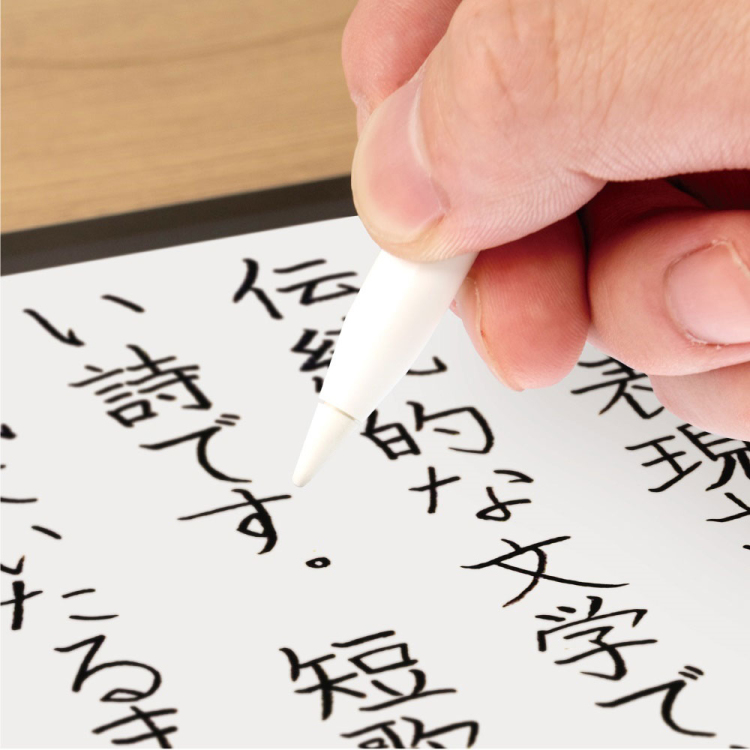 表現
伝統的な文学で
い詩です。短歌
たるき